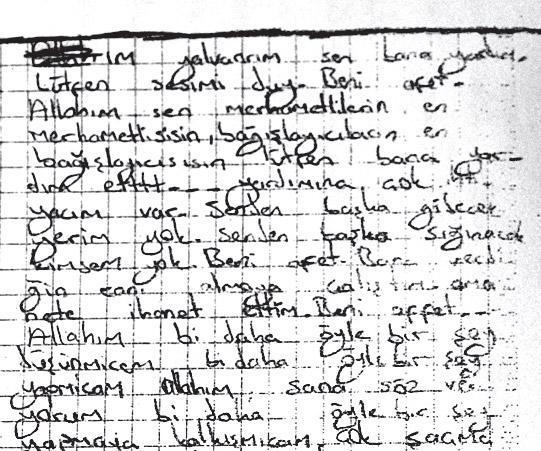 yalvarırım sen bana yardım.
Lütfen sesimi duy. Beni affet.
Allahım sen merhametlilerin en
merhametlisisin, bağışlayıcıların en
bağışlayıcısısın lütfen bana yar-
dım etttt--- yardımına çok iht.
yacım var. Senden başka gidecek
yerim yok. Senden başka sığınacak
kimsem yok. Beni affet. Bana verdi
ğin canı almaya çalıştım ama
ihanet ettim. Beni affet--
Allahım bi daha öyle bir şey
düşünmicem bi daha öyle bir şey
yapmicam allahım sana söz ver
yorum bi daha öyle bir şey
yapmaya kalkışmicam, çok saçma